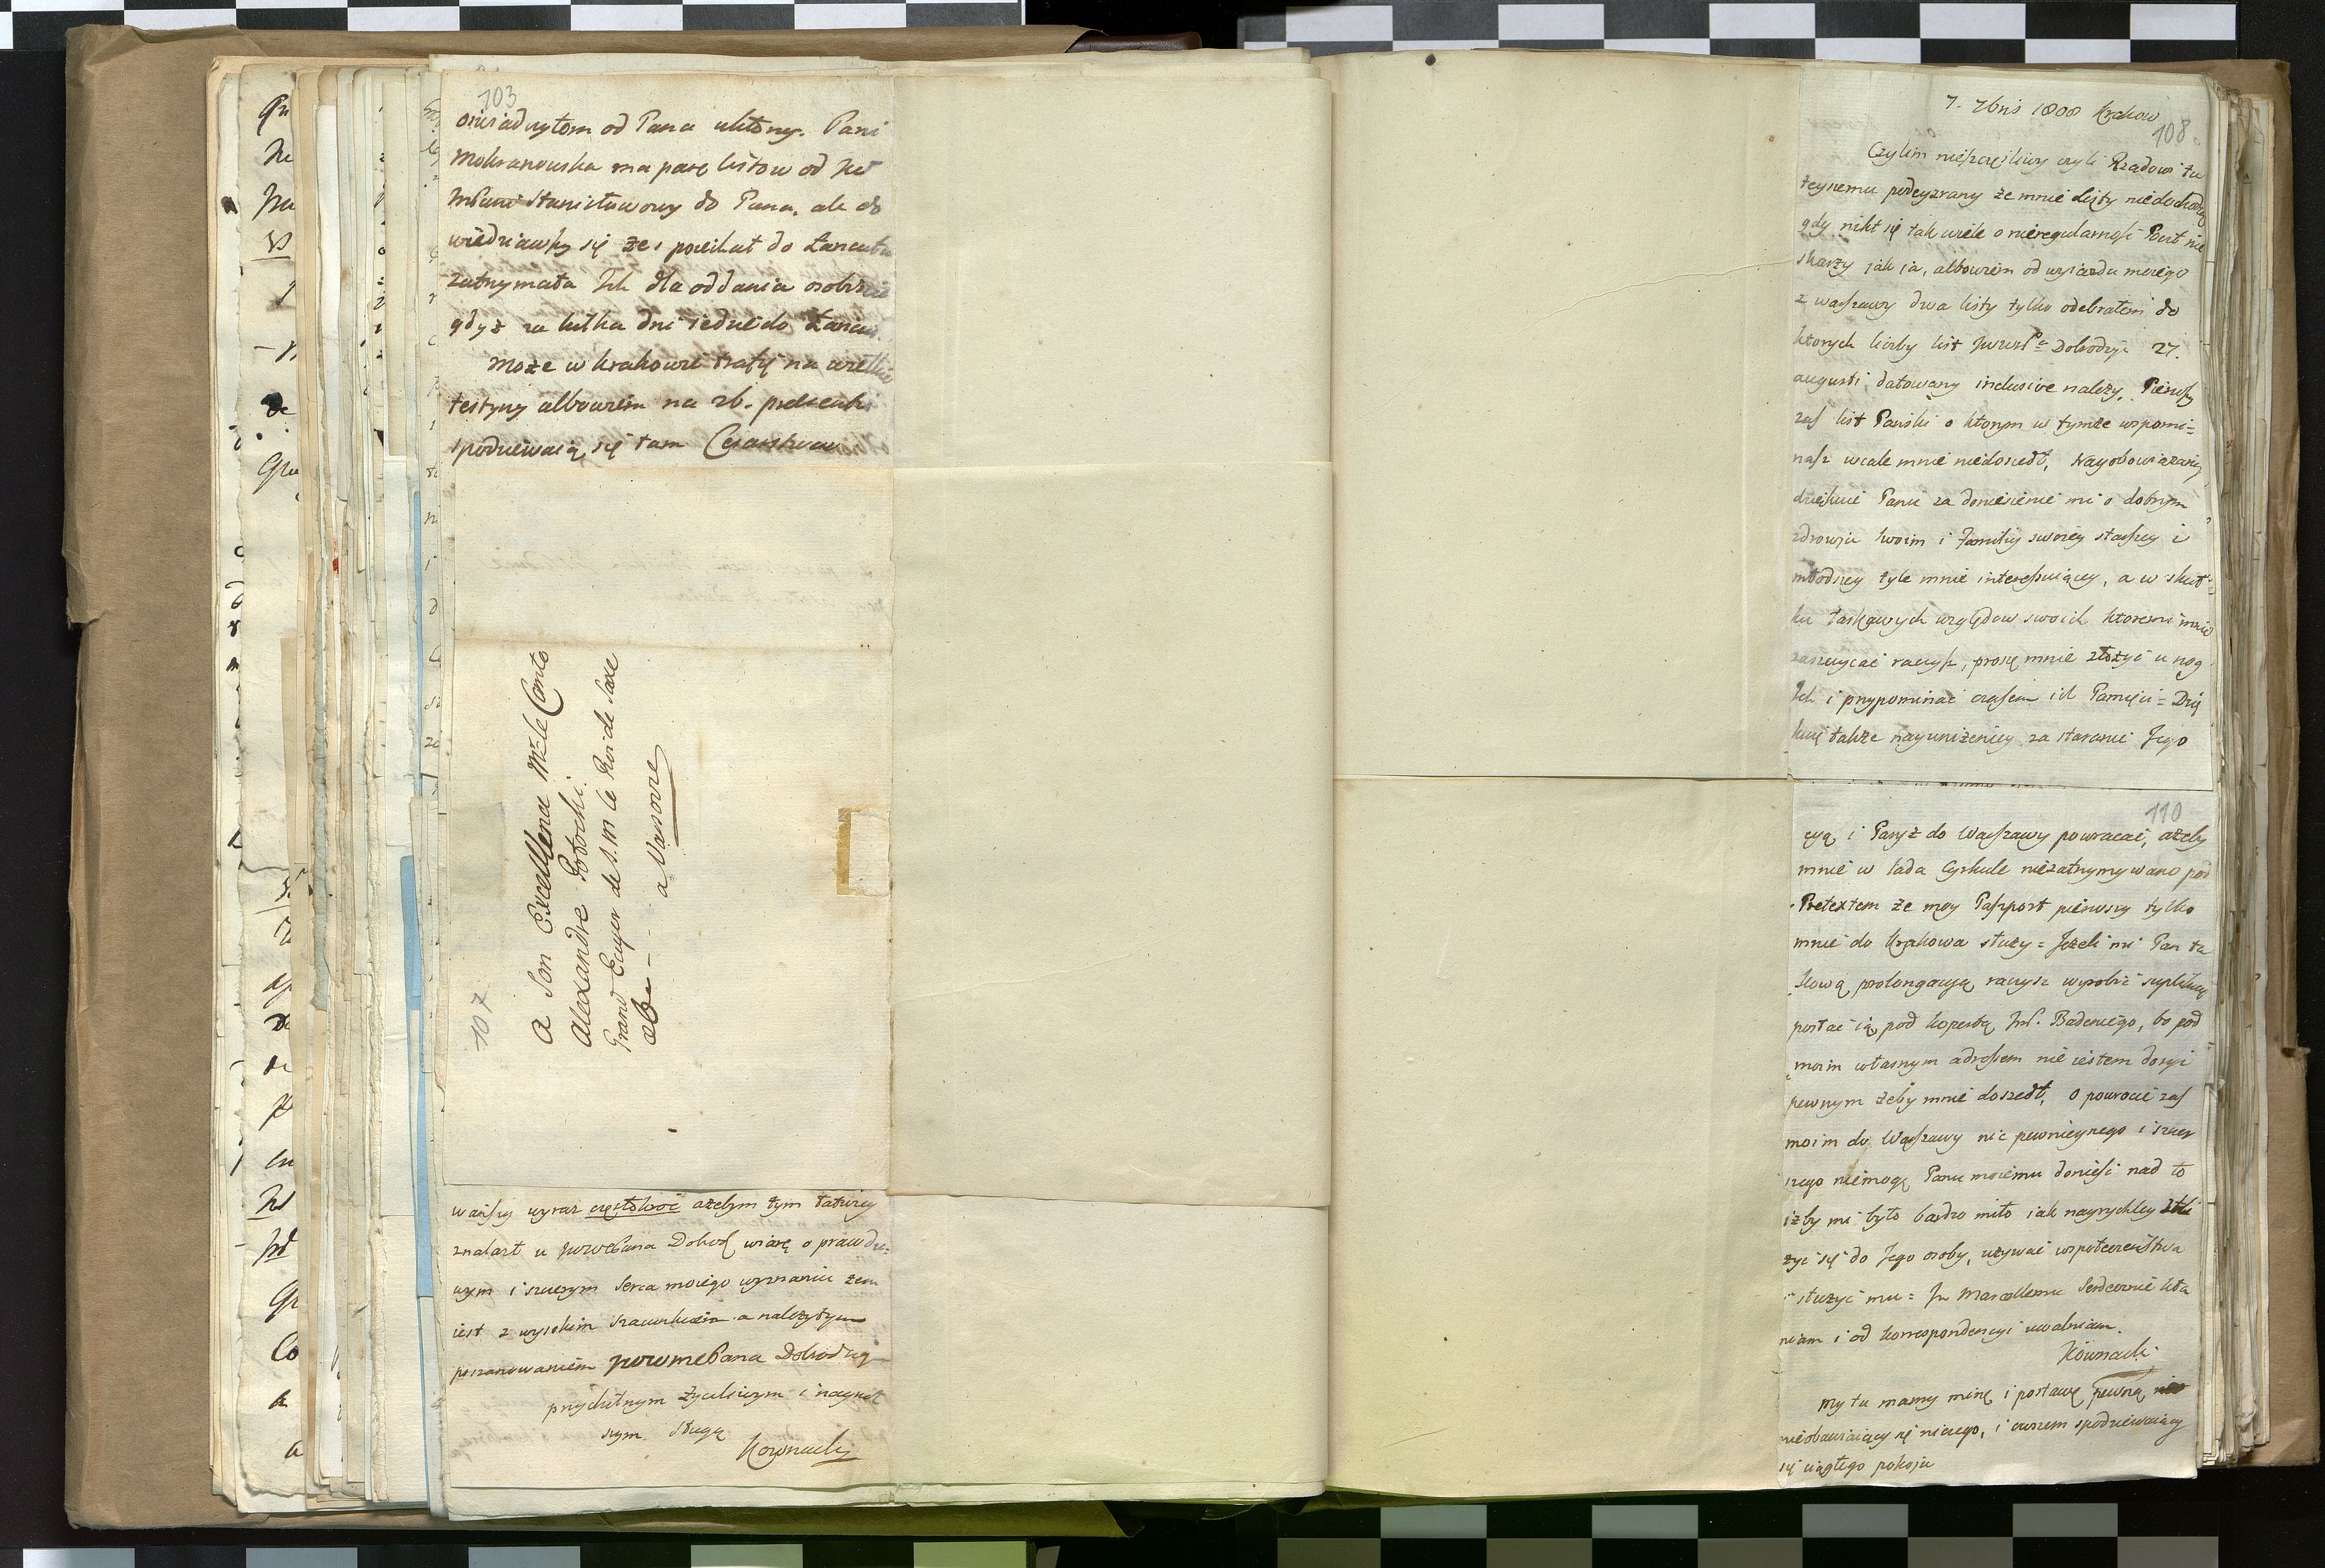 103
oswiadczyłem od Pana ukłony. Pani
Mokranowska ma parę listow od
Stanisławowy do Pana, ale do
wiedziawszy się że poiechał do Łancuta
zatrzymała Ich dla oddania osobiscie
gdyż za kilka dni iedzie do Łancu
Może w Krakowie trafię na wielkie
festyny albowiem na 26. praesentis
spodziewaią się tam Cesarstwa
107
a Son Excellence Mr. le Comte
Alexandre Potocki
Grand Ecuyer de S. M. le Roi de Saxe
a Varsovie
wańszy wyraz częstokroć ażebym tym łatwiey
znalazł u JWWPana Dobrodz wiarę o prawdzi=
wym i szczerym Serca moiego wyznaniu żem
iest z wysokim szacunkiem a należytym
poszanowaniem Pana Dobrodzieja
przychilnym życzliwym i nayniż
szym sługą
Kownacki
7. 7bris 1808 Krakow
108
Czylim nieszczęśliwy czyli Rządowi tu
teyszemu podeyzrany że mnie Listy niedochodzą
gdy nikt się tak wiele o nieregularność Poczt nie
skarzy jak ja, albowiem od wyiazdu moiego
z Warszawy dwa listy tylko odebrałem do
ktorych liczby list Dobrodzja 27.
augusti datowany inclusive należy. Pierwszy
zaś list Pański o ktorym w tymże wspomi=
nasz wcale mnie niedoszedł, Nayobowiązaniey
dziękuie Panu za doniesienie mi o dobrym
zdrowiu swoim i Familiy swoiey starszey i
młodszey tyle mnie interessuiącey, a w skut=
ku łaskawych względow swoich ktoremi mnie
zaszczycać raczysz, proszę mnie złożyć u nog
Ich i przypominać czasem ich Pamięci = Dzię
kuię także nayuniżeniey za staranie Jego
110
cyą i Paryż do Warszawy powracać, ażeby
mnie w lada Cyrkule niezatrzymywano pod
Pretextem że moy Paszport pierwszy tylko
mnie do Krakowa służy = Jeżeli mi Pan ta
kową prolongacyą raczysz wyrobić
posłać ią pod kopertą JP. Badeniego, bo pod
moim własnym adressem nie iestem dosyć
pewnym żeby mnie doszedł, o powrocie zaś
moim do Warszawy nic pewnieyszego i szcze
rszego niemogę Panu moiemu donieść nad to
iżby mi było bardzo miło iak nayrychley zbli
żyć się do Jego osoby, używać współeczeństwa
i służyć mu = JP Marcellemu Serdecznie kła
niam i od korrespondencyi uwalniam.
Kownacki
My tu mamy minę i postawę pewną
nieobawiaiący się niczego, i owszem spodziewaiący
się ciągłego pokoju